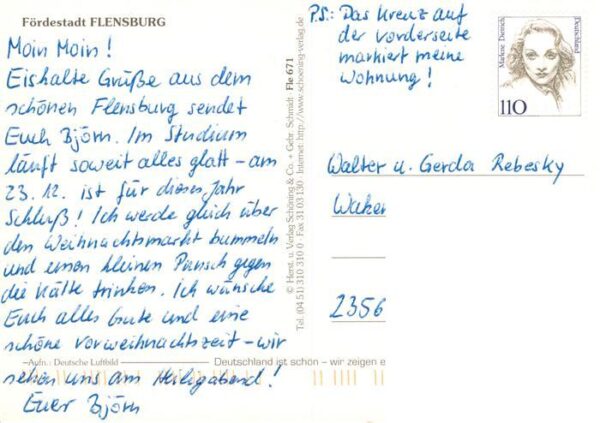 Fördestadt FLENSBURG
Moin Moin!
Eiskalte Grüße aus dem
schönen Flensburg sendet
Euch Björn. Im Studium
läuft soweit alles glatt – am
23.12. ist für dieses Jahr
Schluß! Ich werde gleich über
den Weihnachtsmarkt bummeln
und einen kleinen Punsch gegen
die Kälte trinken. Ich wünsche
Euch alles Gute und eine
schöne Vorweihnachtszeit – wir
sehen uns am Heiligabend!
Euer Björn
–Aufn.: Deutsche Luftbild
Deutschland ist schön – wir zeigen e
© Herst. u. Verlag Schöning & Co. + Gebr. Schmidt Fle 671
Tel. (04 51) 310 310 0 · Fax 31 03 130 · Internet: http://www.schoening-verlag.de
P.S.: Das Kreuz auf
der Vorderseite
markiert meine
Wohnung!
Marlene Dietrich
Deutschland
110
Walter u. Gerda Rebesky
Waker
2356